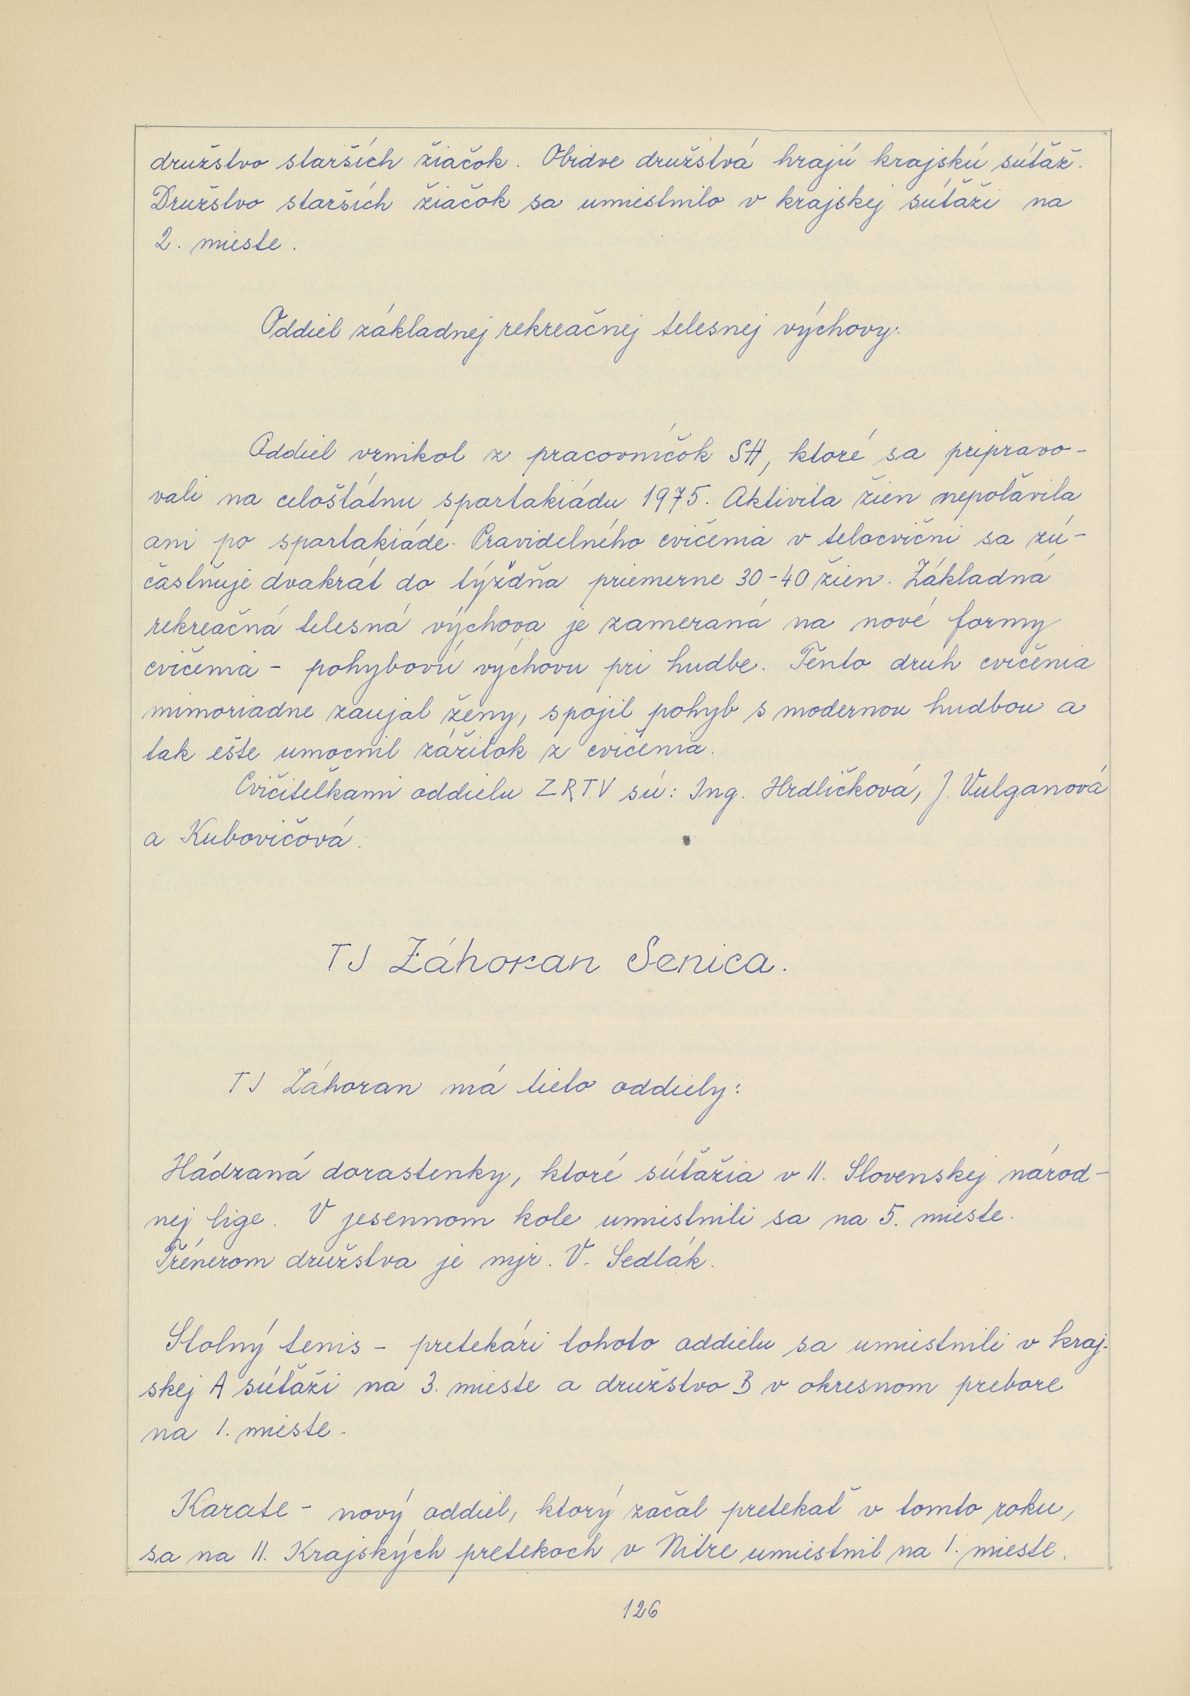 družstvo starších žiačok. Obidve družstvá hrajú krajskú súťaž.
Družstvo starších žiačok sa umiestnilo v krajskej súťaži na
2. mieste.
Oddiel základnej rekreačnej telesnej výchovy.
Oddiel vznikol z pracovníčok SH, ktoré sa pripravo-
vali na celoštátnu spartakiádu 1975. Aktivita žien nepoľavila
ani po spartakiáde. Pravidelného cvičenia v telocvični sa zú-
častňuje dvakrát do týždňa priemerne 30-40 žien. Základná
rekreačná telesná výchova je zameraná na nové formy
cvičenia - pohybovú výchovu pri hudbe. Tento druh cvičenia
mimoriadne zaujal ženy, spojil pohyb s modernou hudbou a
tak ešte umocnil zážitok z cvičenia.
Cvičiteľkami oddielu ZRTV sú: Ing. Hrdličková, J. Vulganová
a Kubovičová.
TJ Záhoran Senica.
TJ Záhoran má tieto oddiely:
Hádzaná dorastenky, ktoré súťažia v II. Slovenskej národ-
nej lige. V jesennom kole umiestnili sa na 5. mieste.
Trénerom družstva je mjr. V. Sedlák.
Stolný tenis - pretekári tohoto oddielu sa umiestnili v kraj-
skej A súťaži na 3. mieste a družstvo B v okresnom prebore
na 1. mieste.
Karate - nový oddiel, ktorý začal pretekať v tomto roku,
sa na II. Krajských pretekoch v Nitre umiestnil na 1. mieste.
126